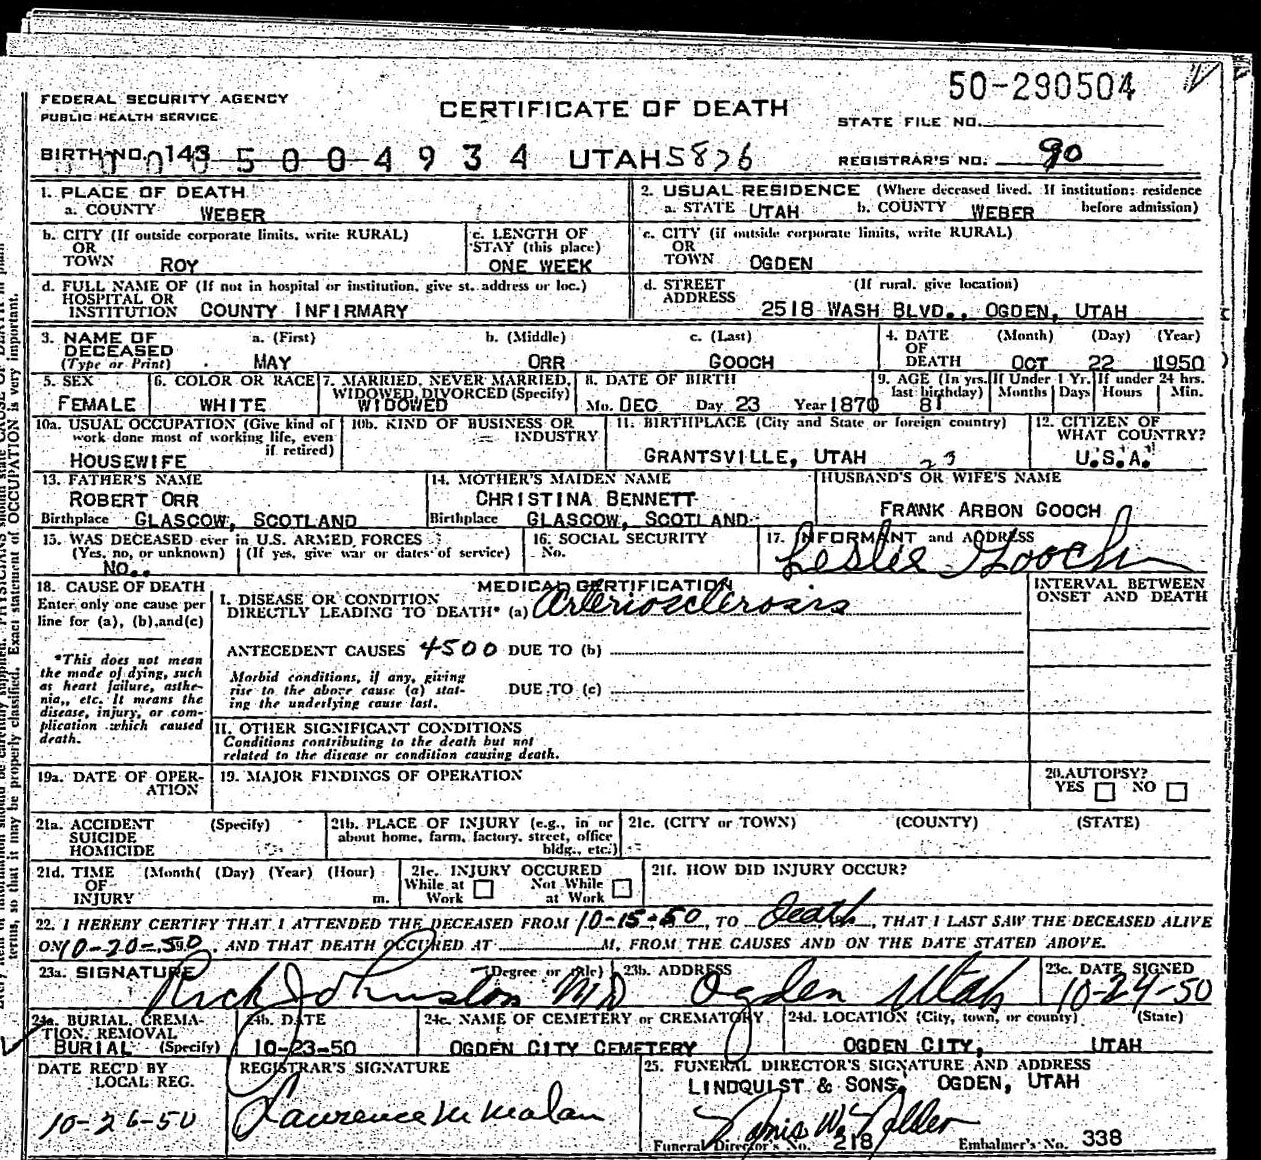 50-290504
FEDERAL SECURITY AGENCY
PUBLIC HEALTH SERVICE
CERTIFICATE OF DEATH
STATE FILE NO.
BIRTH NO. 143 5004934 UTAH 5826
REGISTRAR'S NO. 90
1. PLACE OF DEATH
a. COUNTY WEBER
2. USUAL RESIDENCE (Where deceased lived. If institution: residence before admission)
a. STATE UTAH b. COUNTY WEBER
b. CITY (If outside corporate limits, write RURAL)
OR
TOWN ROY
c. LENGTH OF
STAY (this place)
ONE WEEK
c. CITY (if outside corporate limits, write RURAL)
OR
TOWN OGDEN
d. FULL NAME OF (If not in hospital or institution, give st. address or loc.)
HOSPITAL OR
INSTITUTION COUNTY INFIRMARY
d. STREET (If rural, give location)
ADDRESS 2518 WASH BLVD., OGDEN, UTAH
3. NAME OF DECEASED (Type or Print)
a. (First) b. (Middle) c. (Last)
MAY ORR GOOCH
4. DATE OF DEATH (Month) (Day) (Year)
OCT 22 1950
5. SEX
FEMALE
6. COLOR OR RACE
WHITE
7. MARRIED, NEVER MARRIED,
WIDOWED, DIVORCED (Specify)
WIDOWED
8. DATE OF BIRTH
Mo. DEC Day 23 Year 1870
9. AGE (In yrs. last birthday)
81
If Under 1 Yr. Months Days
If under 24 hrs. Hours Min.
10a. USUAL OCCUPATION (Give kind of
work done most of working life, even
if retired)
HOUSEWIFE
10b. KIND OF BUSINESS OR
INDUSTRY
11. BIRTHPLACE (City and State or foreign country)
GRANTSVILLE, UTAH 23
12. CITIZEN OF
WHAT COUNTRY?
U.S.A.
13. FATHER'S NAME
ROBERT ORR
Birthplace GLASCOW, SCOTLAND
14. MOTHER'S MAIDEN NAME
CHRISTINA BENNETT
Birthplace GLASCOW, SCOTLAND
HUSBAND'S OR WIFE'S NAME
FRANK ARBON GOOCH
15. WAS DECEASED ever in U.S. ARMED FORCES
(Yes, no, or unknown) (If yes, give war or dates of service)
NO.
16. SOCIAL SECURITY
No.
17. INFORMANT and ADDRESS
Leslie Gooch
18. CAUSE OF DEATH
Enter only one cause per
line for (a), (b), and (c)
*This does not mean
the mode of dying, such
as heart failure, asthe-
nia,, etc. It means the
disease, injury, or com-
plication which caused
death.
MEDICAL CERTIFICATION
I. DISEASE OR CONDITION
DIRECTLY LEADING TO DEATH* (a) Arteriosclerosis
ANTECEDENT CAUSES 4500 DUE TO (b)
Morbid conditions, if any, giving
rise to the above cause (a) stat-
ing the underlying cause last.
DUE TO (c)
II. OTHER SIGNIFICANT CONDITIONS
Conditions contributing to the death but not
related to the disease or condition causing death.
INTERVAL BETWEEN
ONSET AND DEATH
19a. DATE OF OPER-
ATION
19. MAJOR FINDINGS OF OPERATION
20. AUTOPSY?
YES NO
21a. ACCIDENT (Specify)
SUICIDE
HOMICIDE
21b. PLACE OF INJURY (e.g., in or
about home, farm, factory, street, office
bldg., etc.)
21c. (CITY or TOWN) (COUNTY) (STATE)
21d. TIME (Month( (Day) (Year) (Hour)
OF
INJURY m.
21e. INJURY OCCURED
While at Work Not While at Work
21f. HOW DID INJURY OCCUR?
22. I HEREBY CERTIFY THAT I ATTENDED THE DECEASED FROM 10-15-50, TO Death, THAT I LAST SAW THE DECEASED ALIVE
ON 10-20-50, AND THAT DEATH OCCURED AT M, FROM THE CAUSES AND ON THE DATE STATED ABOVE.
23a. SIGNATURE (Degree or title)
Rich Johnston MD
23b. ADDRESS
Ogden Utah
23c. DATE SIGNED
10-24-50
24a. BURIAL, CREMA-
TION, REMOVAL
BURIAL (Specify)
24b. DATE
10-23-50
24c. NAME OF CEMETERY or CREMATORY
OGDEN CITY CEMETERY
24d. LOCATION (City, town, or county) (State)
OGDEN CITY, UTAH
DATE REC'D BY
LOCAL REG.
10-26-50
REGISTRAR'S SIGNATURE
Lawrence M Malan
25. FUNERAL DIRECTOR'S SIGNATURE AND ADDRESS
LINDQUIST & SONS, OGDEN, UTAH
Funeral Director's No. 218 Embalmer's No. 338